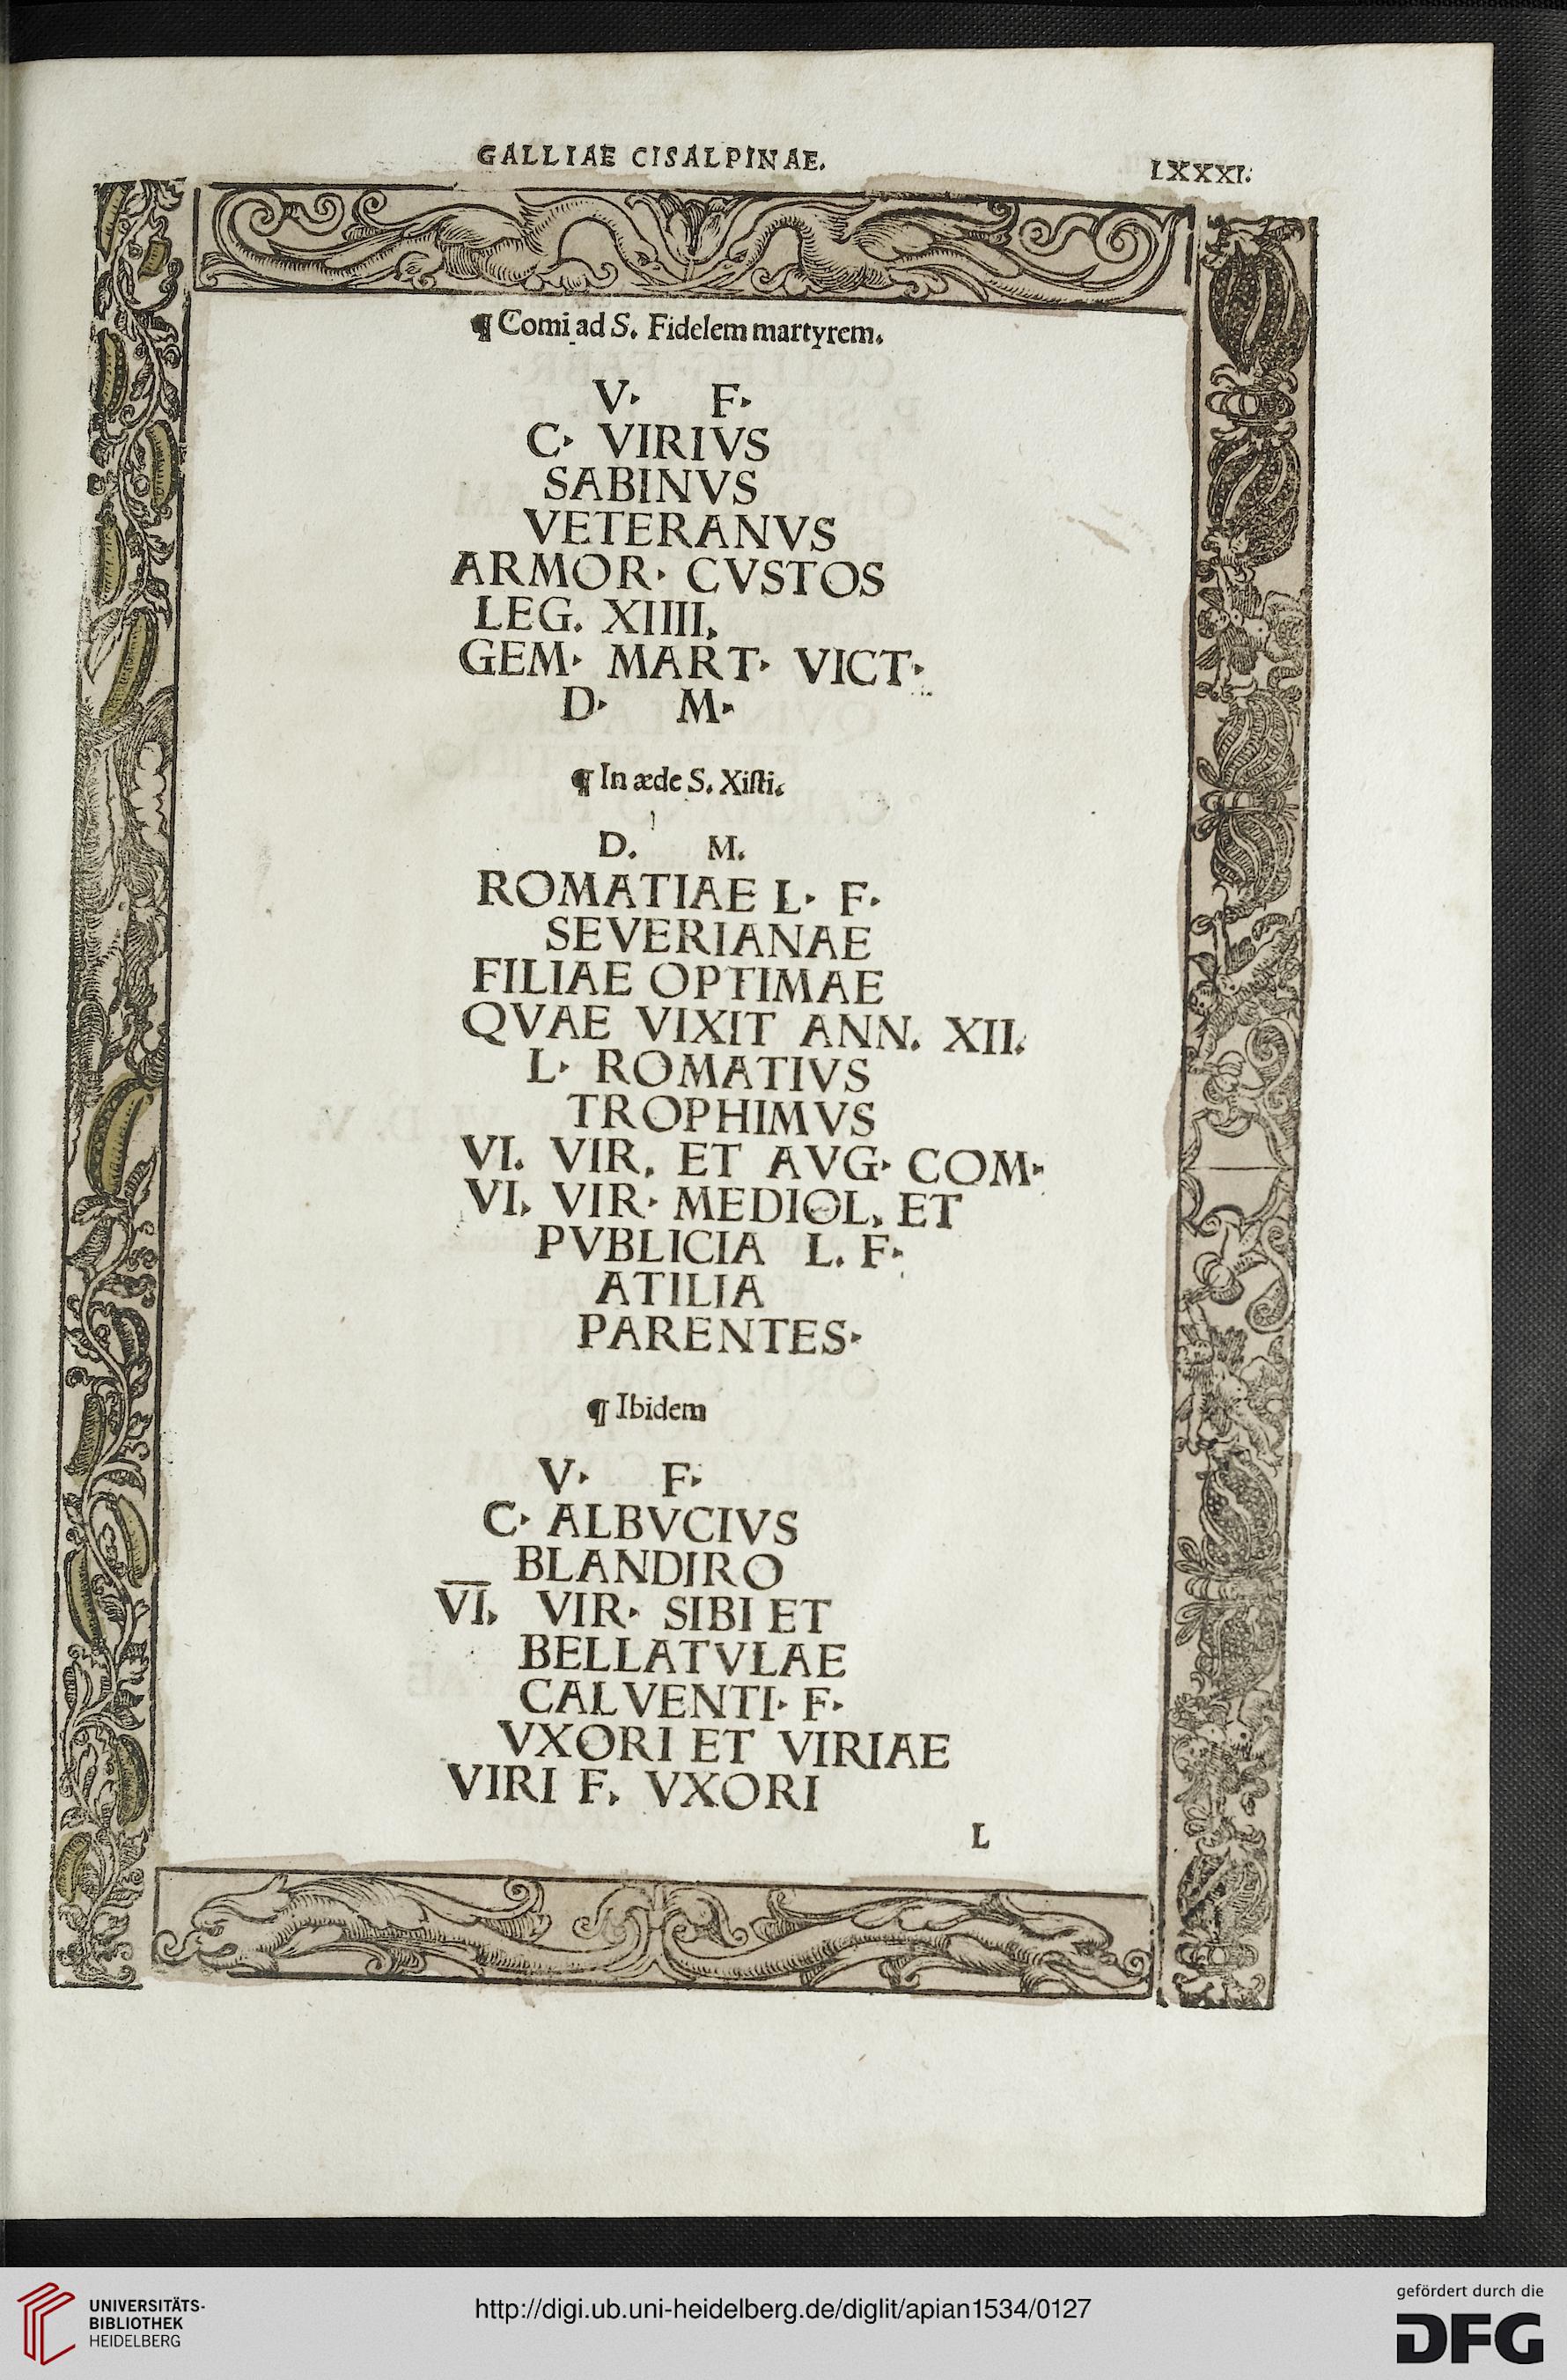 GALLIAE CISALPINAE. LXXXI.
¶ Comi ad S. Fidelem martyrem.
V· F·
C· VIRIVS
SABINVS
VETERANVS
ARMOR· CVSTOS
LEG. XIIII.
GEM· MART· VICT·
D· M·
¶ In æde S. Xiſti.
D. M.
ROMATIAE L· F·
SEVERIANAE
FILIAE OPTIMAE
QVAE VIXIT ANN. XII.
L· ROMATIVS
TROPHIMVS
VI. VIR. ET AVG· COM·
VI. VIR· MEDIOL. ET
PVBLICIA L. F·
ATILIA
PARENTES·
¶ Ibidem
V· F·
C· ALBVCIVS
BLANDIRO
V̅I̅. VIR· SIBI ET
BELLATVLAE
CALVENTI· F·
VXORI ET VIRIAE
VIRI F. VXORI
L
UNIVERSITÄTS-
BIBLIOTHEK
HEIDELBERG
http://digi.ub.uni-heidelberg.de/diglit/apian1534/0127
gefördert durch die
DFG